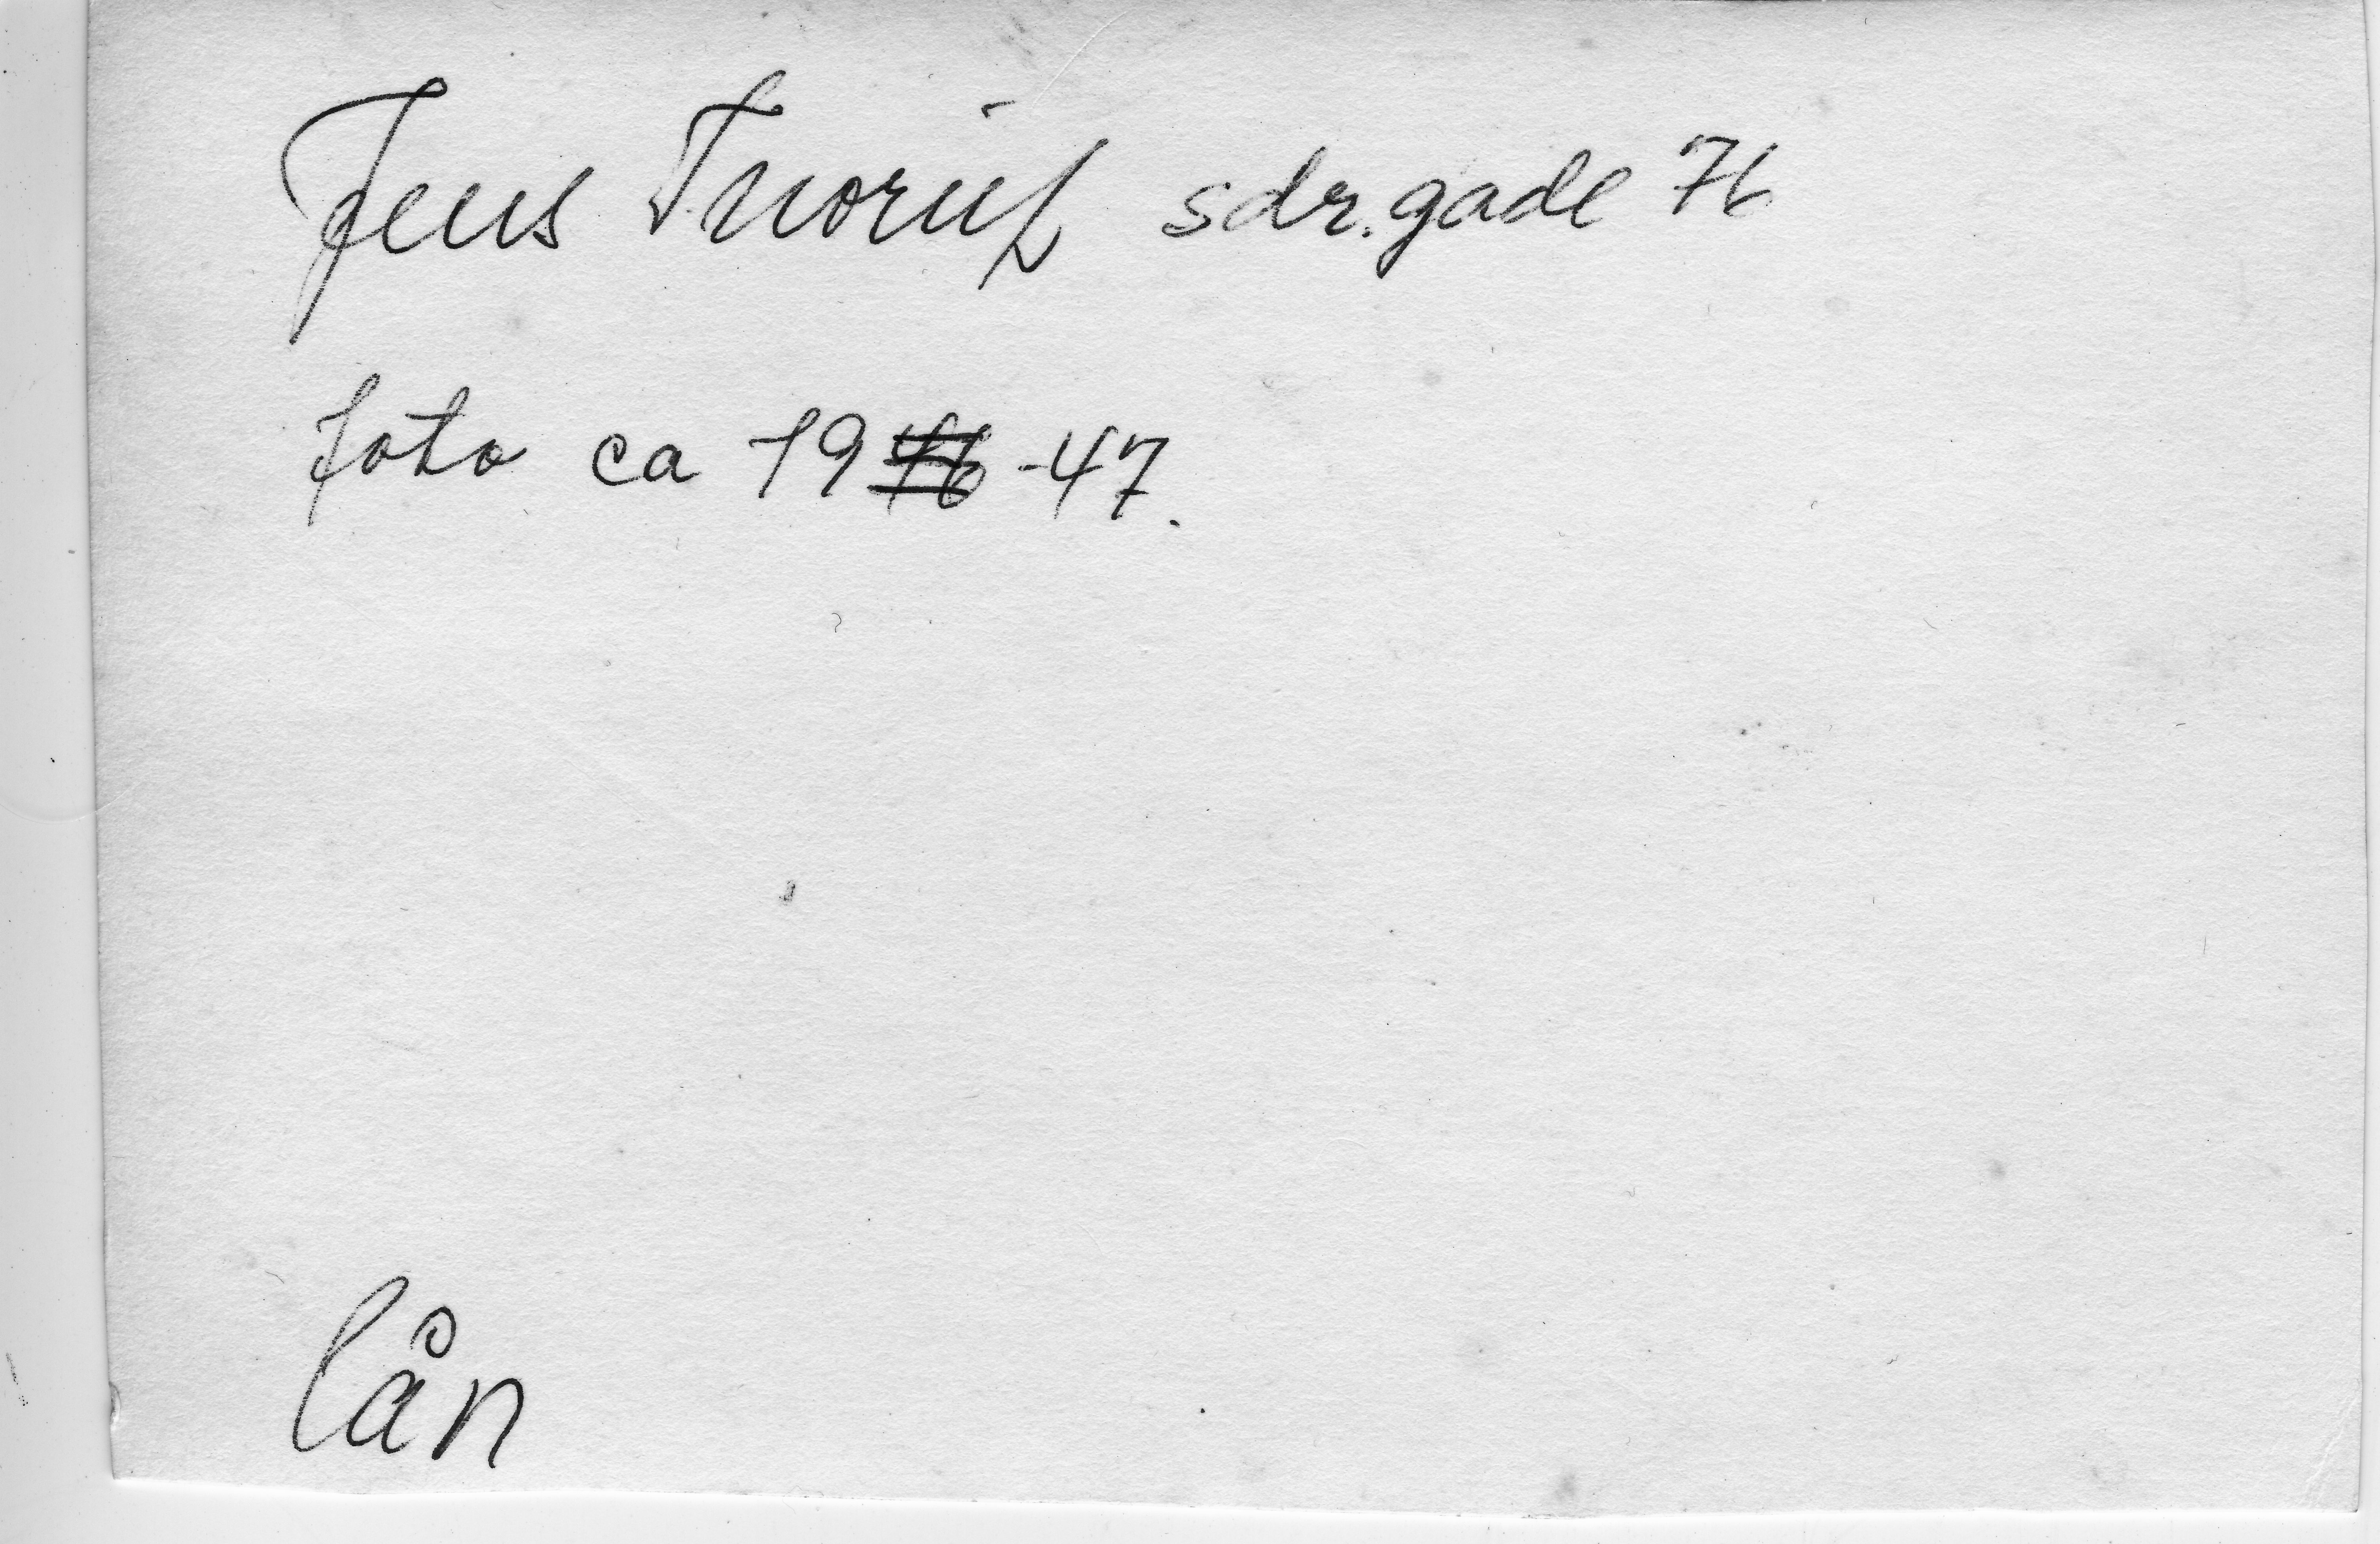 Jens sdr.gade 76
foto ca 19 -47.
lån